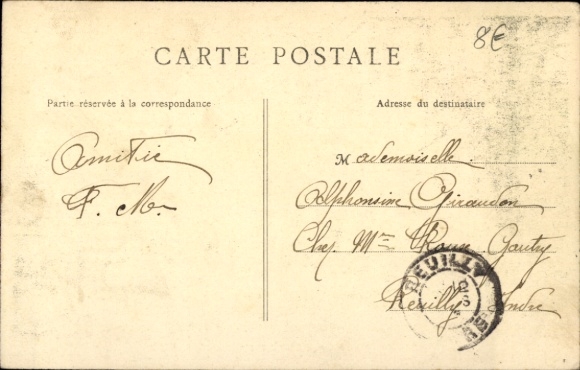 8€
CARTE POSTALE
Partie réservée à la correspondance
Adresse du destinataire
Amitié
F. M.
Mademoiselle
Alphonsine Giraudon
Chez Mme Gautry
Reuilly Indre
REUILLY